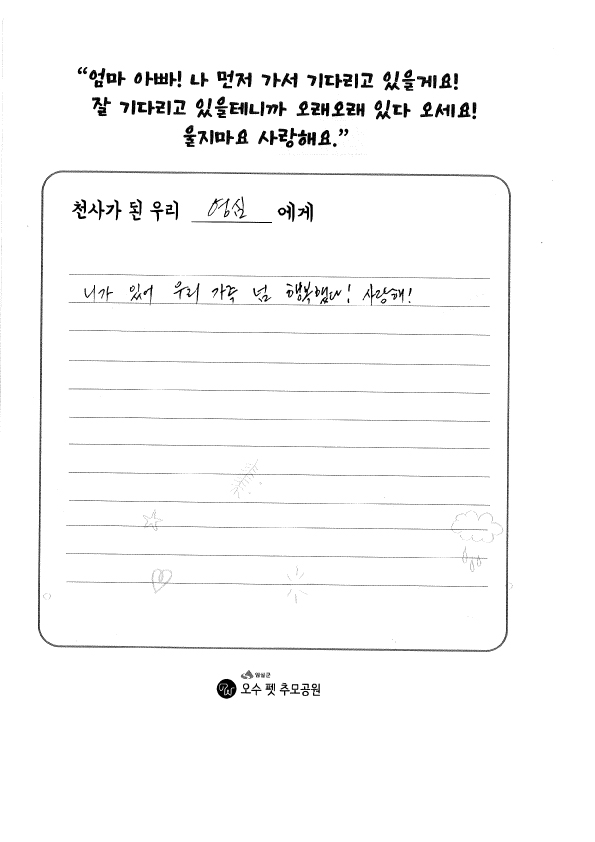 “엄마 아빠! 나 먼저 가서 기다리고 있을게요!
잘 기다리고 있을테니까 오래오래 있다 오세요!
울지마요 사랑해요.”
천사가 된 우리 영심 에게
니가 있어 우리 가족 넘 행복했다! 사랑해!
임실군
오수 펫 추모공원